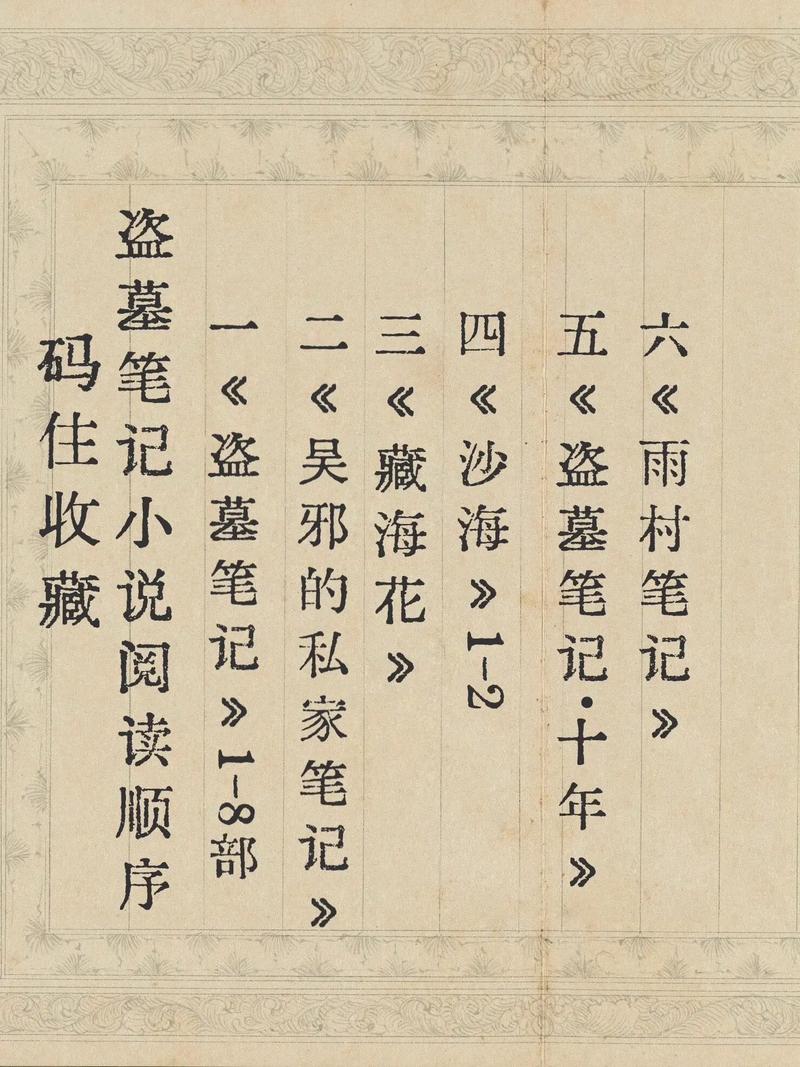 码住收藏
盗墓笔记小说阅读顺序
一《盗墓笔记》1-8部
二《吴邪的私家笔记》
三《藏海花》
四《沙海》1-2
五《盗墓笔记·十年》
六《雨村笔记》